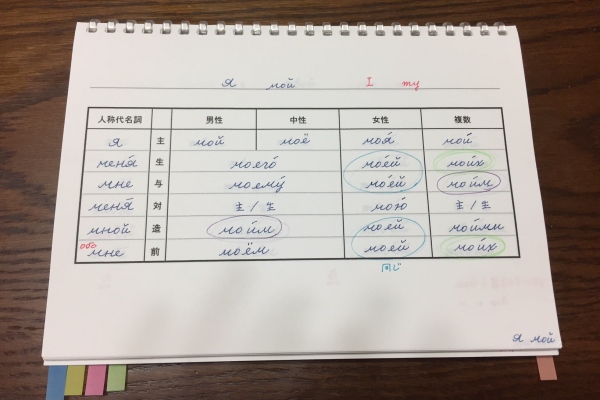 Я мой I my
人称代名詞 男性 中性 女性 複数
я 主 мой моё моя́ мой
меня́ 生 моего́ мое́й мои́х
мне 与 моему́ мое́й мои́м
меня́ 対 主/生 мою́ 主/生
мной 造 мои́м моей мои́ми
обо мне 前 моём моей мои́х
同じ
я мой